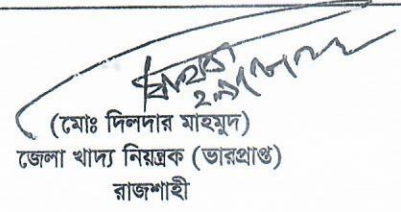 (মোঃ দিলদার মাহমুদ)
জেলা খাদ্য নিয়ন্ত্রক (ভারপ্রাপ্ত)
রাজশাহী